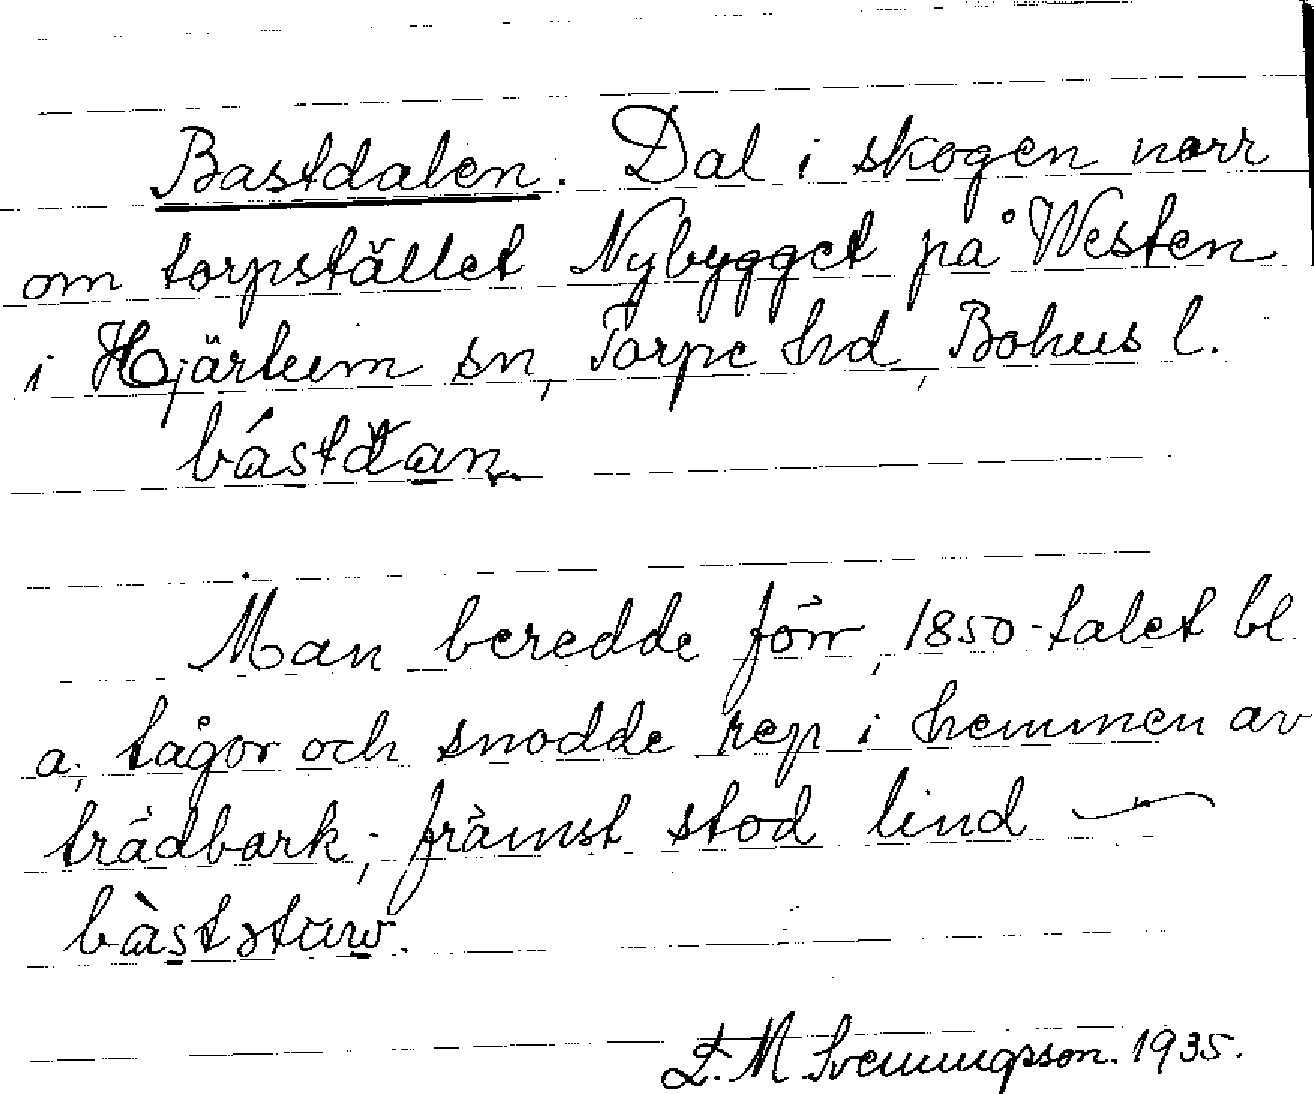 Bastdalen. Dal i skogen norr
om torpstället Nybygget på Westen
i Hjärtum sn, Torpe hd, Bohus l.
Man beredde förr, 1850-talet bl
a; tågor och snodde rep i hemmen av
trädbark; främst stod lind —
L. M Svenungsson. 1935.